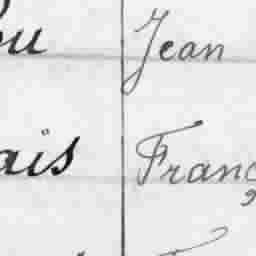 ou Jean
ais Franç